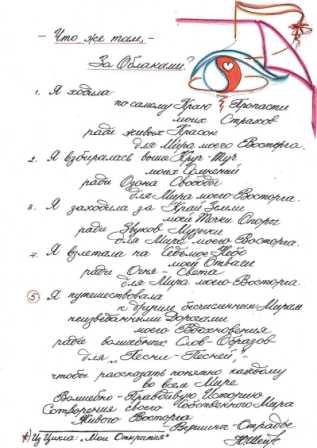 - Что же там, -
За Облаками?
1. Я ходила
по самому Краю Пропасти
моих Страхов
ради живых Красок
для Мира моего Восторга.
2. Я взбиралась выше Круч-Туч
моих Сомнений
ради Озона Свободы
для Мира моего Восторга.
3. Я заходила за Край Земли
моей Точки Опоры
ради Звуков Музыки
для Мира моего Восторга.
4. Я взлетала на Седьмое Небо
моей Отваги
ради Огня-Света
для Мира моего Восторга.
5. Я путешествовала
к другим бесчисленным Мирам
неизведанными Дорогами
моего Вдохновения
ради волшебных Слов-Образов
для „Песни-Песней",-
чтобы рассказать понятно каждому
во всем Мире
Волшебно-Правдивую Историю
Сотворения своего Собственного Мира
Живого Восторга
Вершины-Отрады
*) Из Цикла: „Мои Открытия"